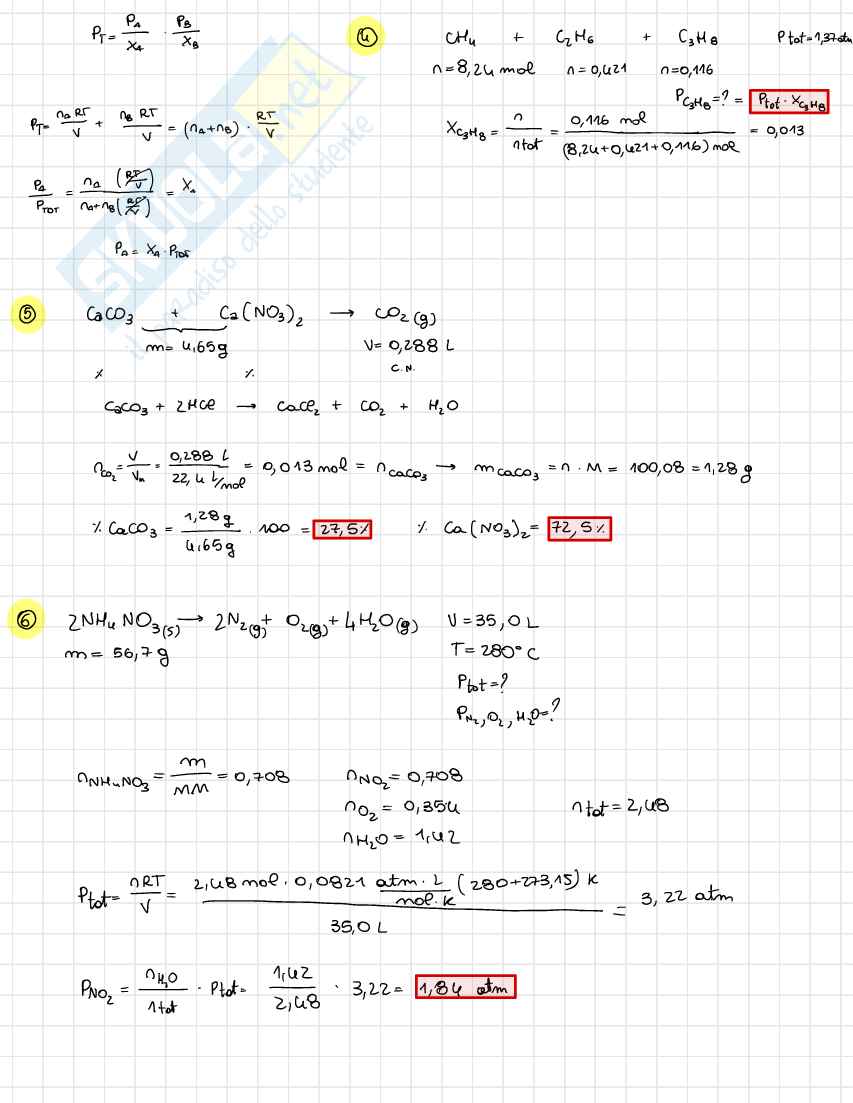 P_T = P_A/X_A · P_B/X_B
P_T = n_A RT/V + n_B RT/V = (n_A + n_B) · RT/V
P_A/P_TOT = n_A (RT/V)/n_A + n_B (RT/V) = X_A
P_A = X_A · P_TOT
4 CH4 + C2H6 + C3H8 P tot = 1,37 atm
n = 8,24 mol n = 0,421 n = 0,116
P_C3H8 = ? = P_tot · X_C3H8
X_C3H8 = n/n tot = 0,116 mol/(8,24 + 0,421 + 0,116) mol = 0,013
5 CaCO3 + Ca(NO3)2 → CO2 (g)
m = 4,65 g V = 0,288 L
C.N.
% %
CaCO3 + 2HCl → CaCl2 + CO2 + H2O
n_CO2 = V/V_m = 0,288 L/22,4 L/mol = 0,013 mol = n_CaCO3 → m_CaCO3 = n · M = 100,08 = 1,28 g
% CaCO3 = 1,28 g/4,65 g · 100 = 27,5% % Ca(NO3)2 = 72,5%
6 2NH4NO3(s) → 2N2(g) + O2(g) + 4H2O(g) V = 35,0 L
m = 56,7 g T = 280°C
P_tot = ?
P_N2, O2, H2O = ?
n_NH4NO3 = m/MM = 0,708 n_NO2 = 0,708
n_O2 = 0,354 n tot = 2,48
n_H2O = 1,42
P_tot = nRT/V = 2,48 mol · 0,0821 atm · L/mol · K (280 + 273,15) K/35,0 L = 3,22 atm
P_NO2 = n_H2O/n tot · P_tot = 1,42/2,48 · 3,22 = 1,84 atm
SKUOLA.net
il paradiso dello studente